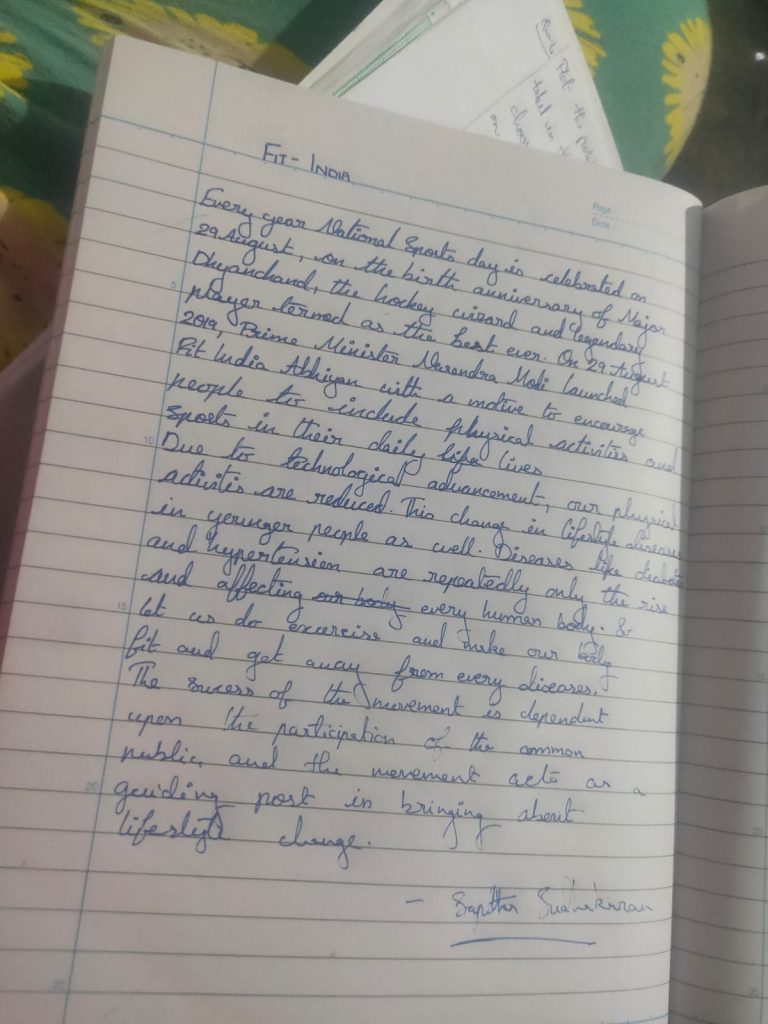 FIT - INDIA
Page
Date
Every year National Sports day is celebrated on
29 August, on the birth anniversary of Major
Dhyanchand, the hockey wizard and legendary
player termed as the best ever. On 29 August
2019, Prime Minister Narendra Modi launched
Fit India Abhiyan with a motive to encourage
people to include physical activities and
sports in their daily life lives
Due to technological advancement, our physical
activitis are reduced. This change in lifestyle diseases
in younger people as well. Diseases like
and hypertension are repeatedly only the rise
and affecting our body every human body. &
let us do excercise and make our body
fit and get away from every diseases.
The sucess of the movement is dependent
upon the participation of the common
public, and the movement acts as a
guiding post in bringing about
lifestyle change.
5
10
15
20
25
Plot the
on